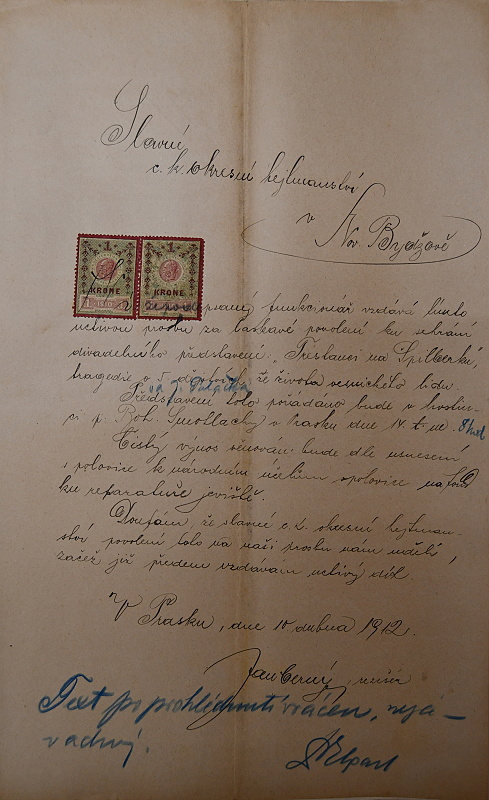 Slavné
c. k. okresní hejtmanství
v
Nov. Bydžově
1 1
KRONE KRONE
podepsaný funkcionář vzdává tímto
uctivou prosbu za laskavé povolení ku sehrání
divadelního představení „Trestanci na Špilberku,
tragedie o 5 dějstvích ze života vesnického lidu.
Představení toto pořádáno bude v hostin-
ci p. Boh. Smollachy v Prasku dne 14. t. m. 8 hod
Čistý výnos věnován bude dle usnesení
z polovice k národním účelům z polovice na fond
ku reparatuře jeviště.
Doufám, že slavné c. k. okresní hejtman-
ství povolení toto na naši prosbu nám udělí,
začež již předem vzdávám uctivý dík.
V Prasku, dne 10 dubna 1912.
Jan Černý, režisér
Text po prohlédnutí vrácen, nezá-
vadný.